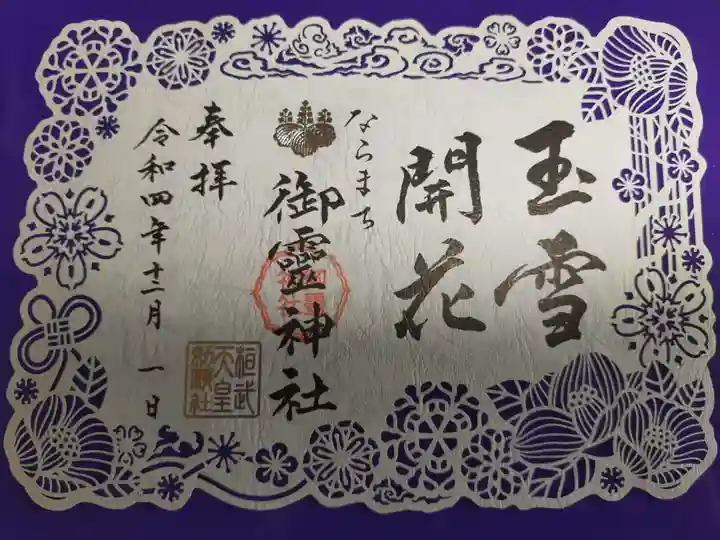 玉雪
開花
ならまち
御靈神社
奉拝
令和四年十二月一日
桓武
天皇
勅願社